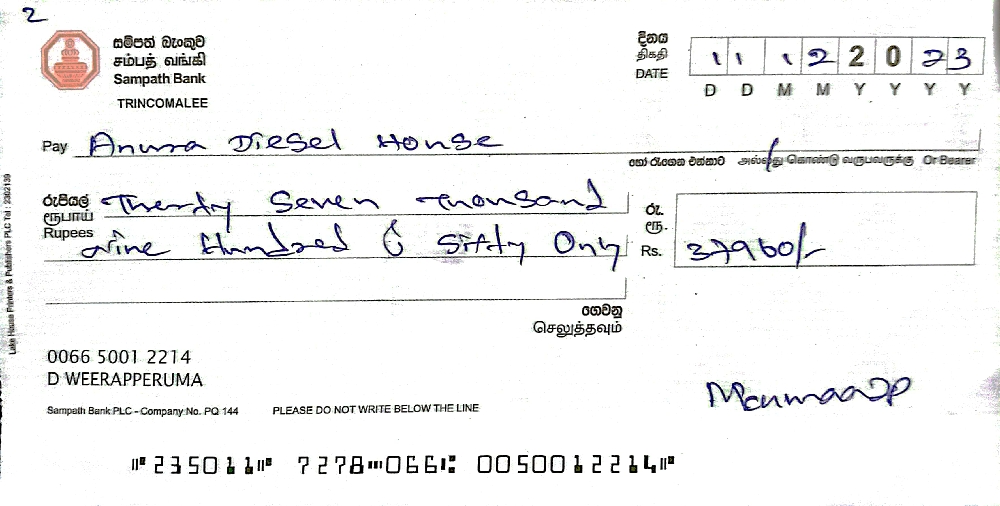 2
සම්පත් බැංකුව
சம்பத் வங்கி
Sampath Bank
TRINCOMALEE
දිනය
திகதி
DATE
11 12 2023
D D M M Y Y Y Y
Pay Anura Diesel House
හෝ රැගෙන එන්නාට அல்லது கொண்டு வருபவருக்கு Or Bearer
රුපියල්
ரூபாய்
Rupees
Therty Seven Thousand
Nine Hundred & Sifty Only
රු.
ரூ.
Rs. 37960/-
ගෙවනු
செலுத்தவும்
0066 5001 2214
D WEERAPPERUMA
Sampath Bank PLC - Company No. PQ 144 PLEASE DO NOT WRITE BELOW THE LINE
⑈235011⑈ 7278⑉066⑆ 0050012214⑈
Lake House Printers & Publishers PLC Tel : 2302139